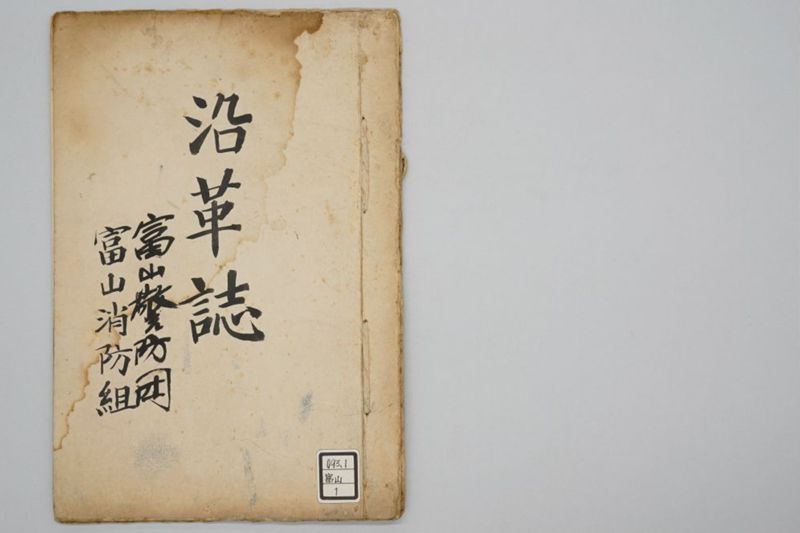 沿革誌
富山警防団
富山消防組
093.1
富山
1